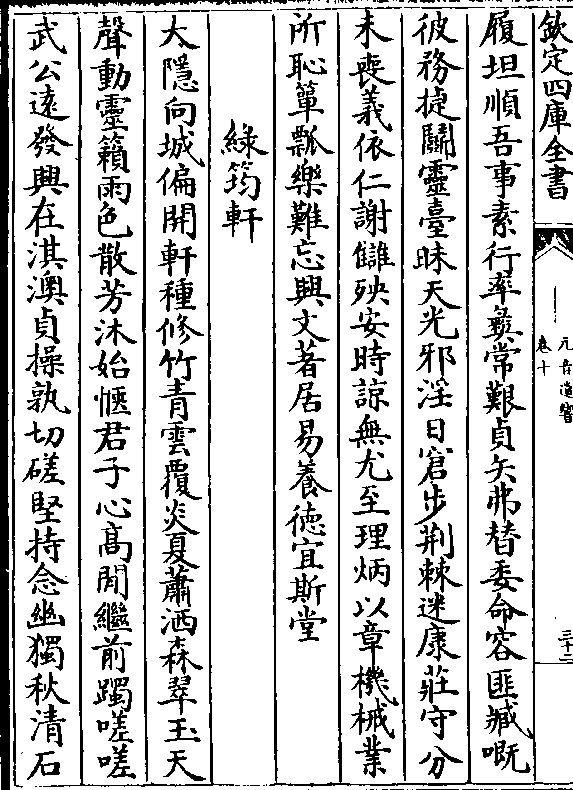 欽定四庫全書
元音遺響
卷十
三十二
履坦順吾事素行率彛常艱貞矢弗替委命容匪臧嘅
彼務捷鬬靈臺昧天光邪淫日窘步荆棘迷康莊守分
未喪義依仁謝讎殃安時諒無尤至理炳以章機械業
所恥簞瓢樂難忘興文著居易養徳宜斯堂
緑筠軒
大隱向城偏開軒種修竹青雲覆炎夏蕭洒森翠玉天
聲動靈籟雨色散芳沐始愜君子心髙閒繼前躅嗟嗟
武公逺發興在淇澳貞操孰切磋堅持念幽獨秋清石